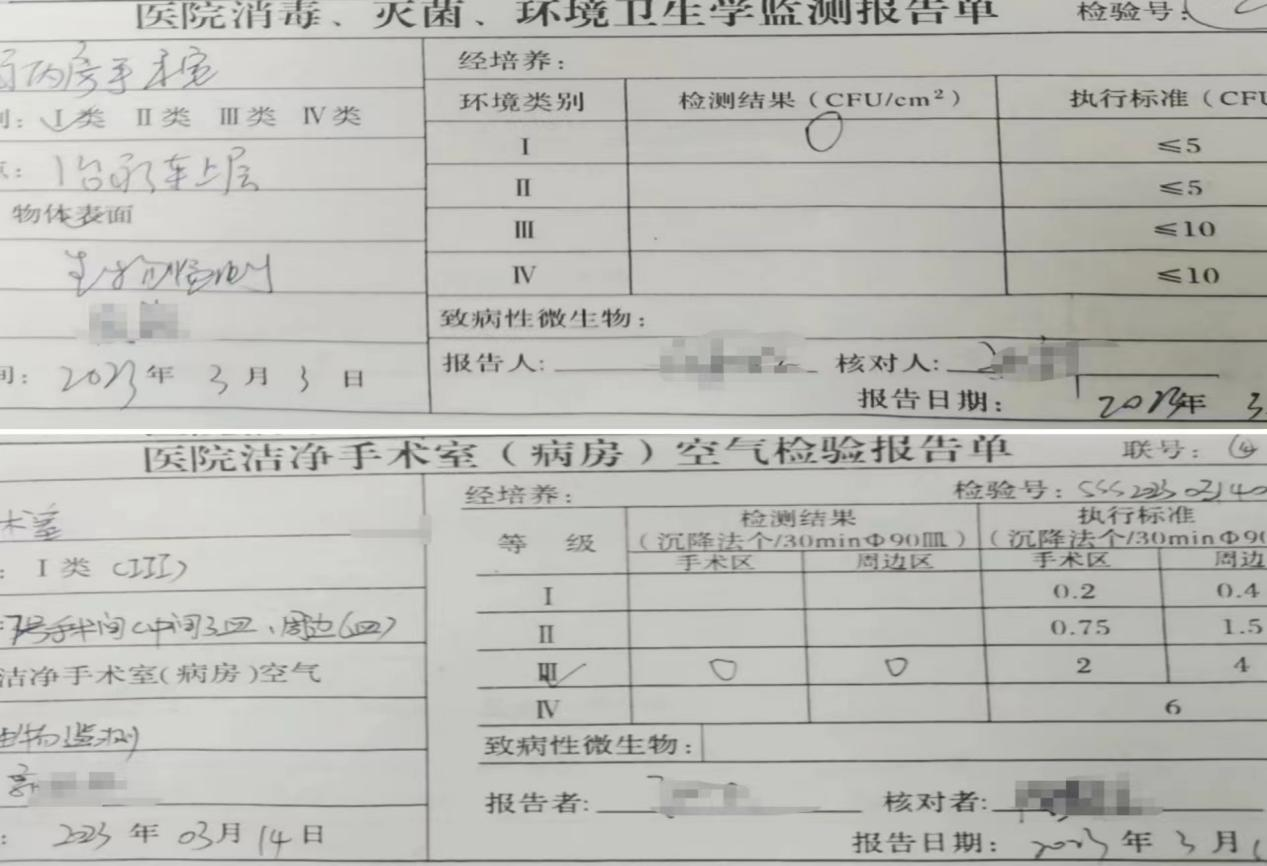 医院消毒、灭菌、环境卫生学监测报告单 检验号:
手术室
经培养:
Ⅰ类 Ⅱ类 Ⅲ类 Ⅳ类
环境类别 检测结果(CFU/cm²) 执行标准(CFU
Ⅰ 0 ≤5
车上层
Ⅱ ≤5
物体表面
Ⅲ ≤10
Ⅳ ≤10
致病性微生物:
报告人: 核对人:
2023年 3月 3日
报告日期: 2023年 3
医院洁净手术室(病房)空气检验报告单 联号: ④
经培养: 检验号:
术室
等 级 检测结果 执行标准
(沉降法个/30minΦ90皿) (沉降法个/30minΦ90
手术区 周边区 手术区 周边
: Ⅰ类 (III)
Ⅰ 0.2 0.4
7号手术间(中间3皿、周边6皿)
Ⅱ 0.75 1.5
洁净手术室(病房)空气
Ⅲ 0 0 2 4
Ⅳ 6
生物监测
致病性微生物:
报告者: 核对者:
: 2023年 03月 14日
报告日期: 2023年 3月